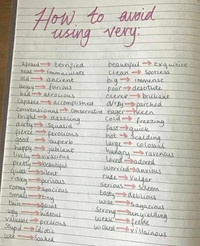 How to avoid
using very:
afraid → terrified
neat → immaculate
old → ancient
angry → furious
bad → atrocious
capable → accomplished
conventional → conservative
bright → dazzling
dirty → squalid
fierce → ferocious
good → superb
happy → jubilant
lively → vivacious
pretty → beautiful
quiet → silent
risky → perilous
roomy → spacious
small → tiny
thin → gaunt
ugly → hideous
valuable → precious
stupid → idiotic
wet → soaked
beautiful → exquisite
clean → spotless
big → immense
poor → destitute
clever → brilliant
dry → parched
eager → keen
cold → freezing
fast → quick
hot → scalding
large → colossal
hungry → ravenous
loved → adored
worried → anxious
rude → vulgar
serious → solemn
tasty → delicious
wise → sagacious
strong → unyielding
weak → feeble
wicked → villainous